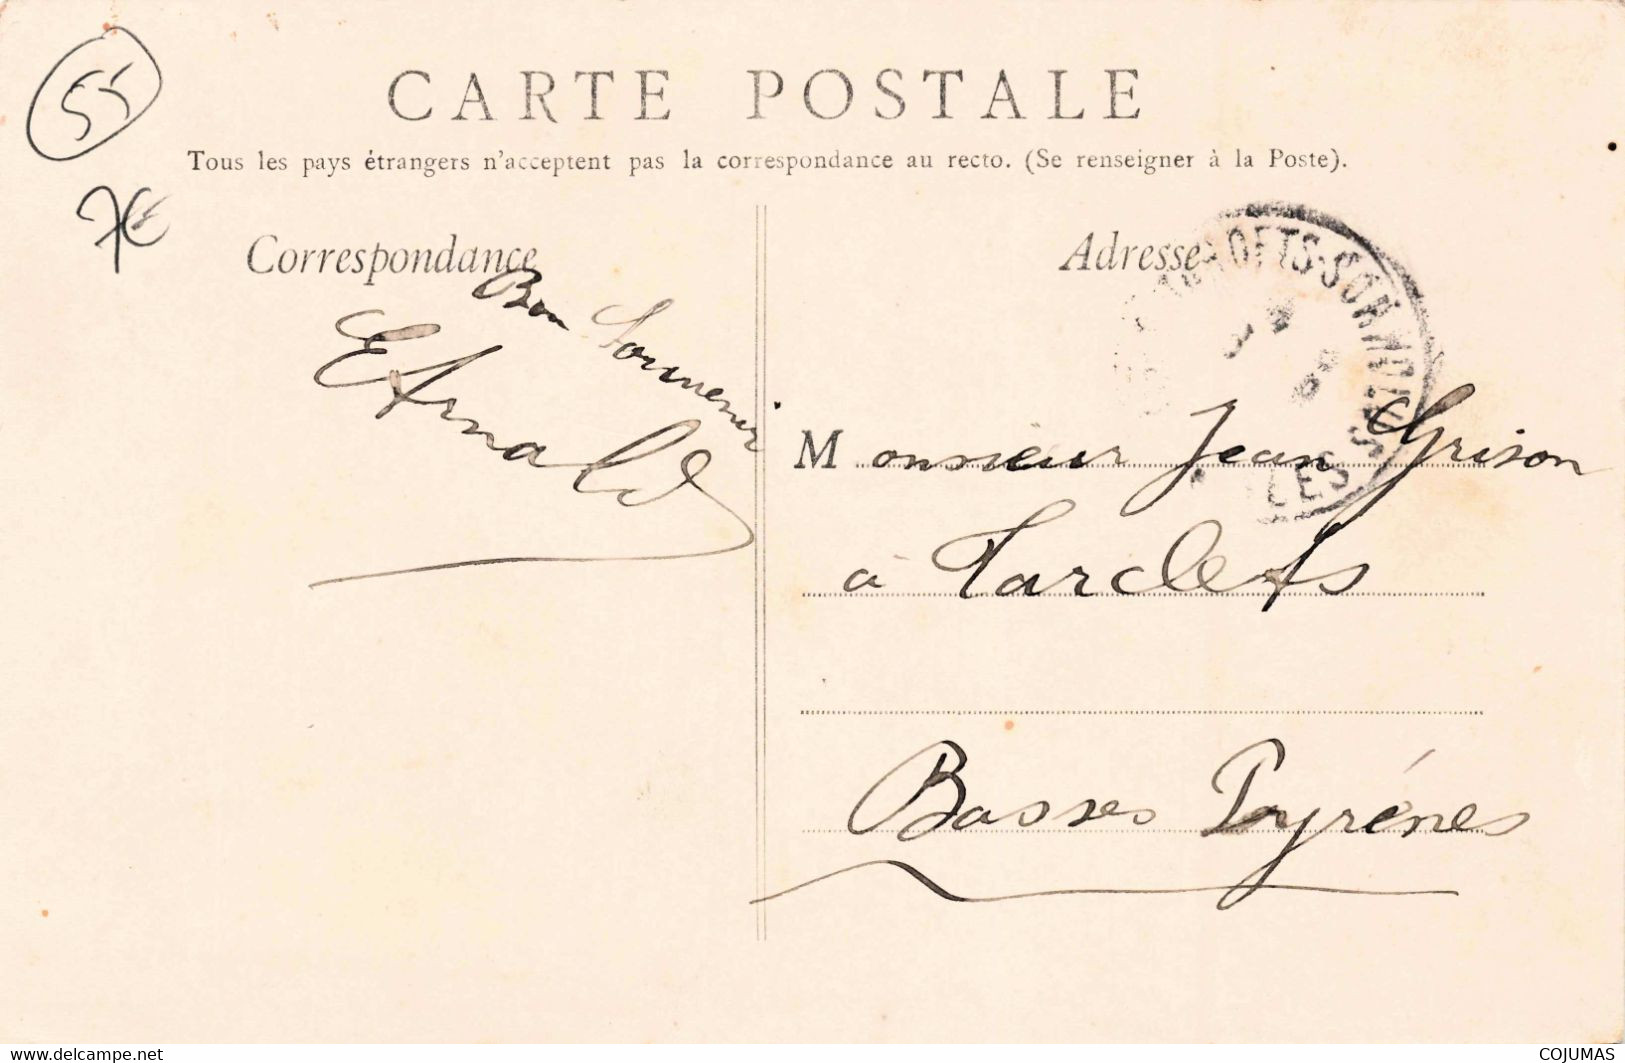 55
7€
CARTE POSTALE
Tous les pays étrangers n'acceptent pas la correspondance au recto. (Se renseigner à la Poste).
Correspondance
Bon Souvenir
E Arnald
Adresse
Monsieur Jean Grison
à Tardets
Basses Pyrénées
www.delcampe.net
COJUMAS